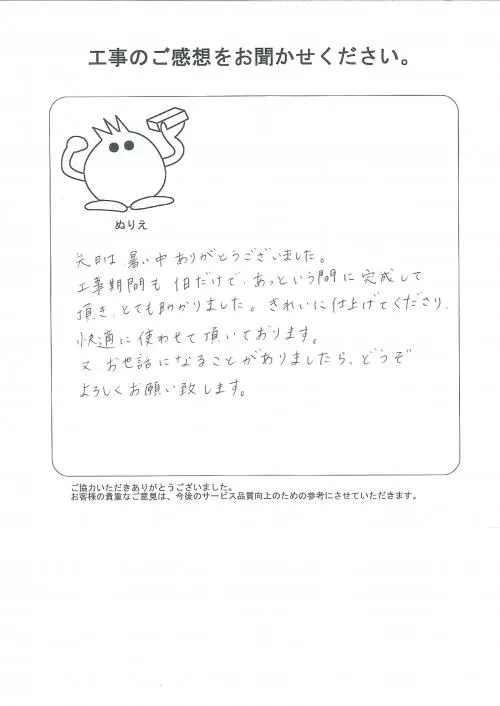 工事のご感想をお聞かせください。
ぬりえ
先日は 暑い中 ありがとうございました。
工事期間も 1日だけで、あっという間に 完成して
頂き、とても助かりました。きれいに仕上げてくださり、
快適に使わせて頂いております。
又、お世話になることがありましたら、どうぞ
よろしくお願い致します。
ご協力いただきありがとうございました。
お客様の貴重なご意見は、今後のサービス品質向上のための参考にさせていただきます。